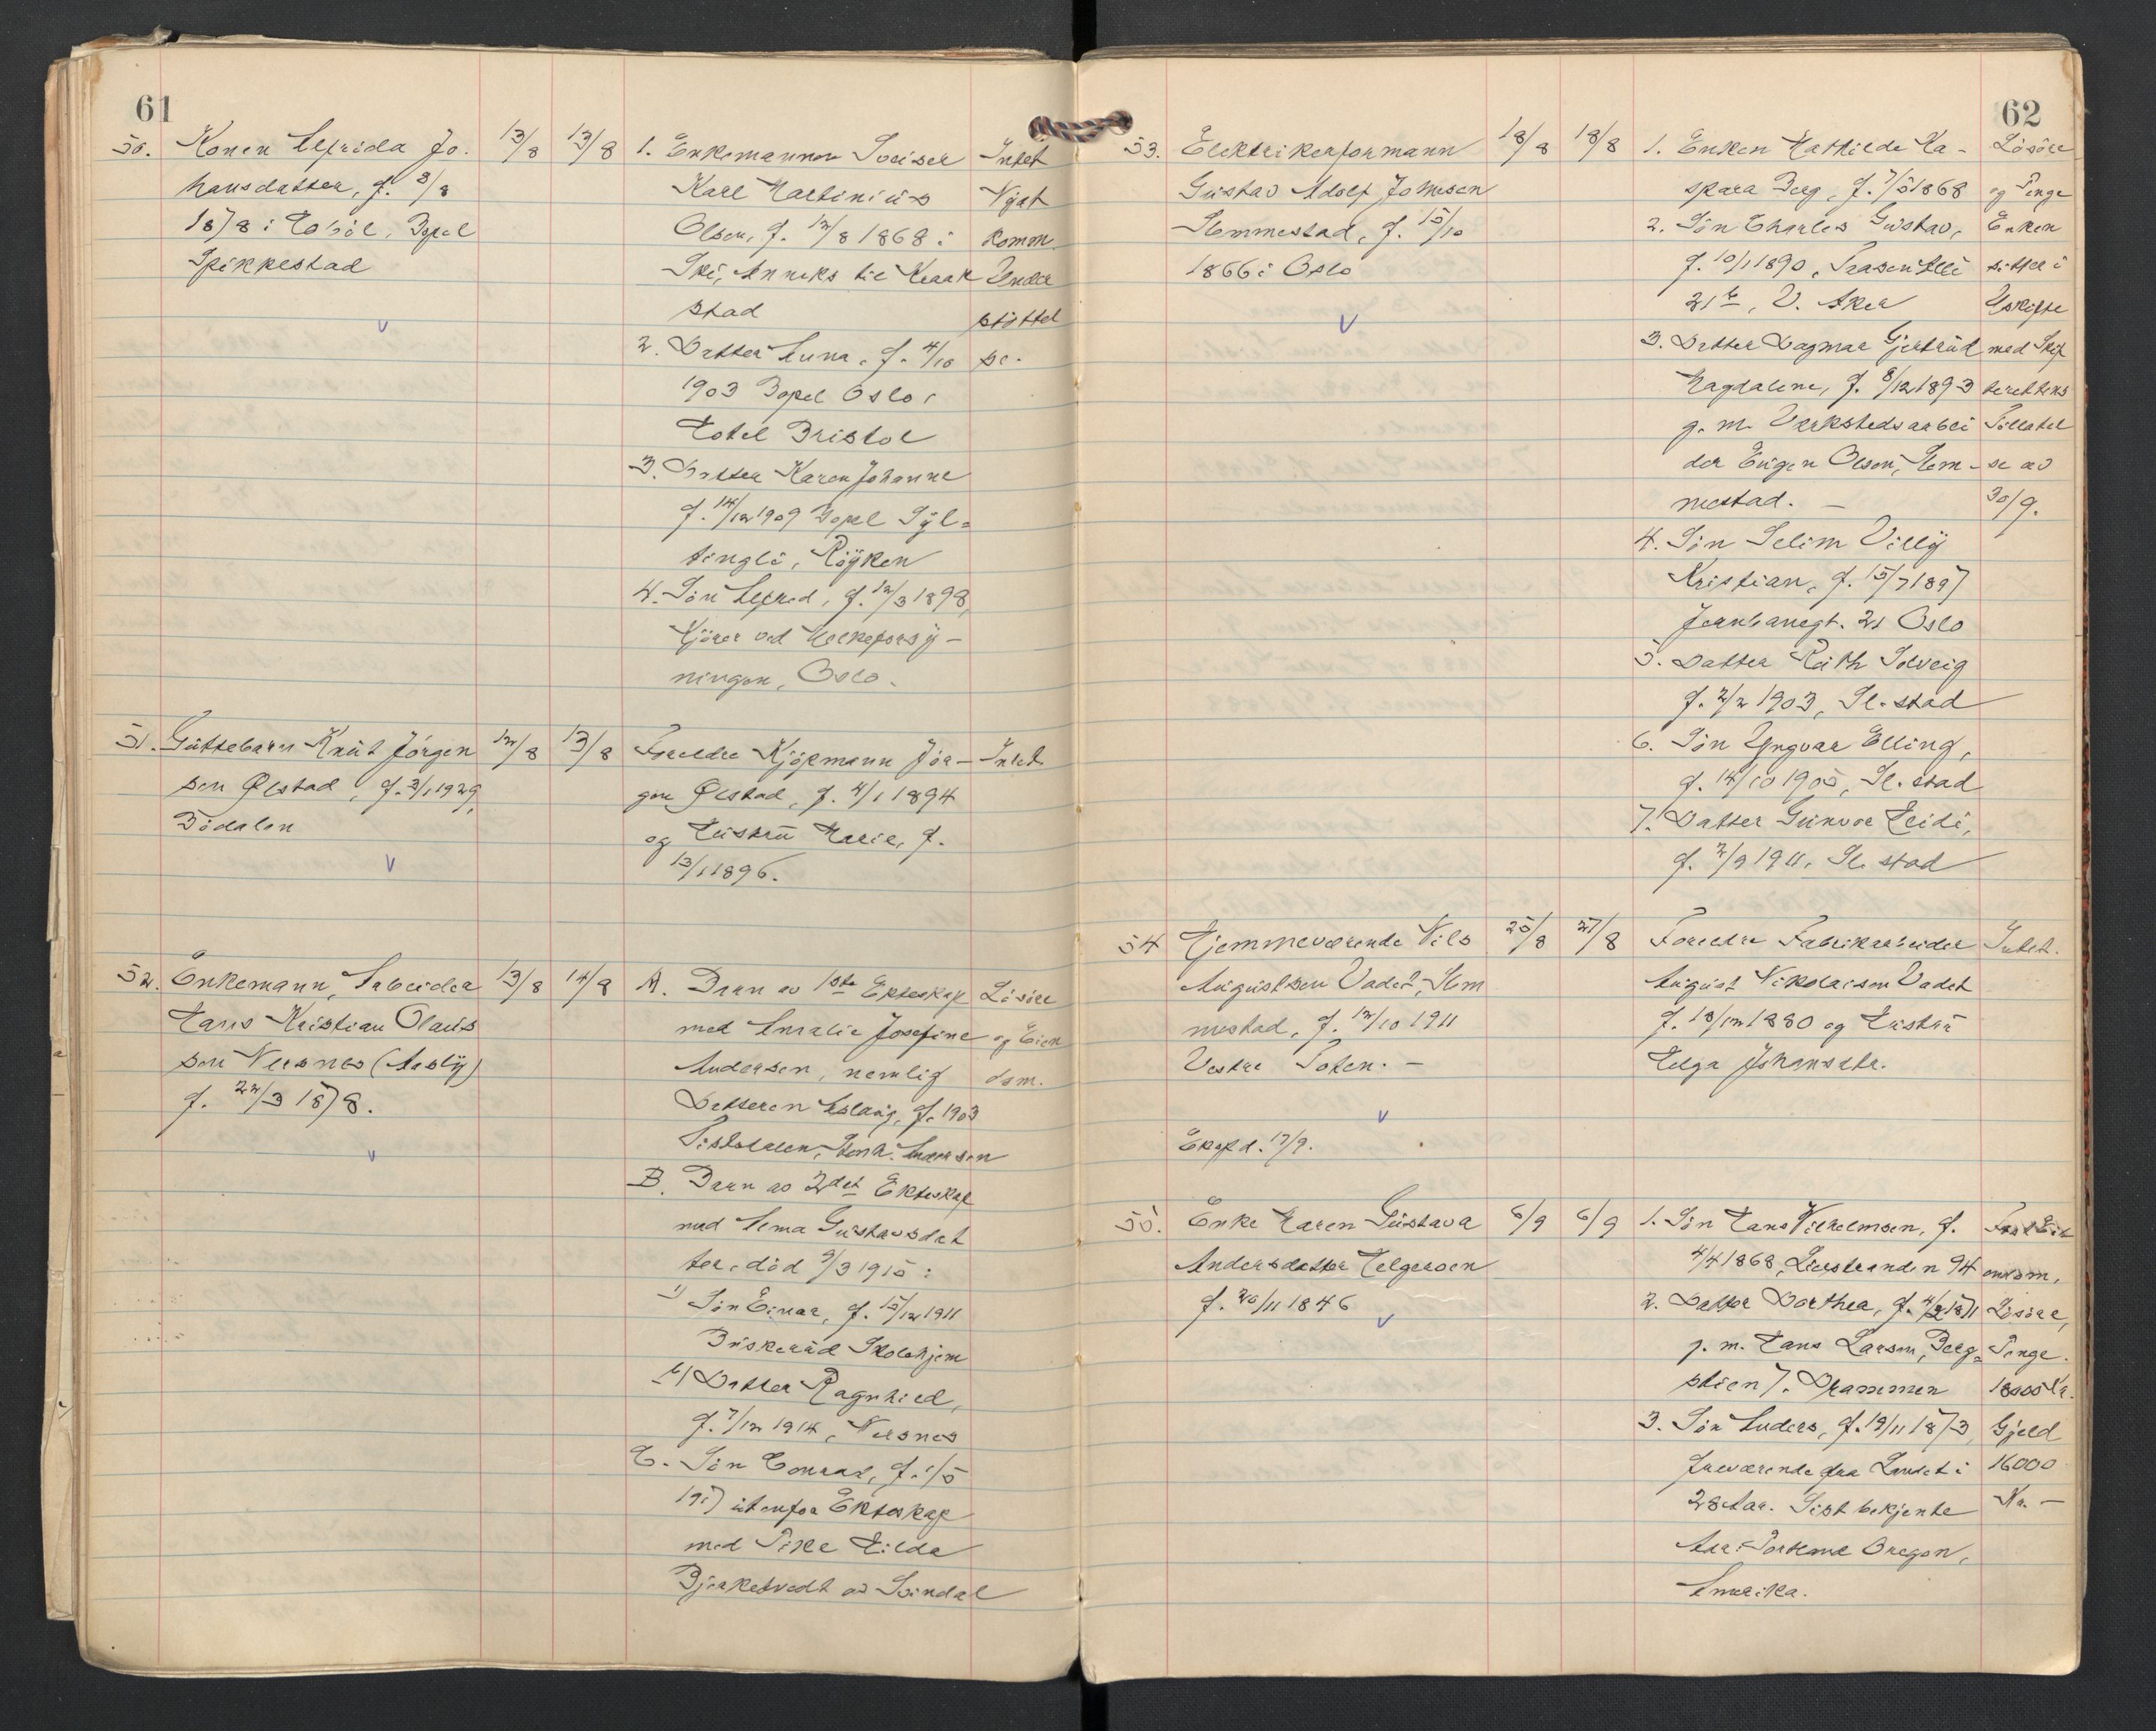 61
50. Konen Alfrida Jo-
hansdatter, f. 8/8
1878 i Hobøl, Bopel
Spikkestad
13/8
13/8
1. Enkemannen Sveiser
Karl Martinius
Olsen, f. 12/8 1868 i
Ski, Anneks til Kraak
stad
2. Datter Anna, f. 4/10
1903 Bopel Oslo,
Hotel Bristol
3. Datter Karen Johanne
f. 14/12 1909 Bopel Syl-
tingli, Røyken
4. Søn Alfred, f. 12/3 1898,
Kjører ved Melkeforsy-
ningen, Oslo.
Intet
Nyat
Komm.
Under
støttel
se.
51. Guttebarn Knut Jørgen
sen Ølstad, f. 3/1 1929,
Bødalen
12/8
13/8
Foreldre Kjøpmann Jør-
gen Ølstad, f. 4/1 1894
og Hustru Marie, f.
13/1 1896.
Intet
52. Enkemann, Arbeider
Hans Kristian Olaus
sen Nersnes (Aasly)
f. 22/3 1878.
13/8
14/8
A. Barn av 1ste Ekteskap
med Amalie Josefine
Andersen, nemlig
Datteren Aslaug, f. 1903
Andersen
B. Barn av 2det Ekteskap
med Anna Gustavsdat
ter, død 9/3 1915:
1) Søn Einar, f. 15/12 1911
Buskerud Skolehjem
2) Datter Ragnhild,
f. 7/12 1914, Nersnes
C. Søn Conrad, f. 1/5
1917 utenfor Ekteskap
med Pike Hilda
Bjerketvedt av Svindal
Løsøre
og Eien
dom.
62
53. Elektrikerformann
Gustav Adolf Johnsen
Slemmestad, f. 15/10
1866 i Oslo
18/8
18/8
1. Enken Mathilde Ka-
spara Berg, f. 7/5 1868
2. Søn Charles Gustav,
f. 10/1 1890, Trasen Alle
21 b, V. Aker
3. Datter Dagmar Gjertrud
Magdalene, f. 8/12 1893
g. m. Verkstedsarbei
der Eugen Olsen, Slem-
mestad. —
4. Søn Selim Villy
Kristian, f. 15/7 1897
Jernbanegt. 21 Oslo
5. Datter Ruth Solveig
f. 2/2 1903, Sl. stad
6. Søn Yngvar Elling,
f. 14/10 1905, Sl. stad
7. Datter Gunvor Heidi,
f. 2/9 1911, Sl. stad
Løsøre
og Penge
Enken
sitter i
Uskifte
med Skif
terettens
Tillatel
se av
30/9.
54 Hjemmeværende Nils
Augustsen Vadet, Slem
mestad, f. 12/10 1911
Vestre Toten. —
Eksp d. 17/9.
25/8
27/8
Foreldre Fabrikarbeider
August Nikolaisen Vadet
f. 18/12 1880 og Hustru
Helga Johansdtr.
Intet.
55. Enke Maren Gustava
Andersdatter Helgersen
f. 20/11 1846
6/9
6/9
1. Søn Hans Vilhelmsen, f.
4/4 1868, Lierstranden 94
2. Datter Dorthea, f. 4/2 1871
g. m. Hans Larsen, Berg-
stien 7. Drammen
3. Søn Anders, f. 19/11 1873,
fraværende fra Landet i
28 Aar. Sist bekjente
Adr. Portland Oregon,
Amerika.
Fast Ei
endom,
Løsøre,
Penge.
18000 Kr.
Gjeld
16000
Kr. —